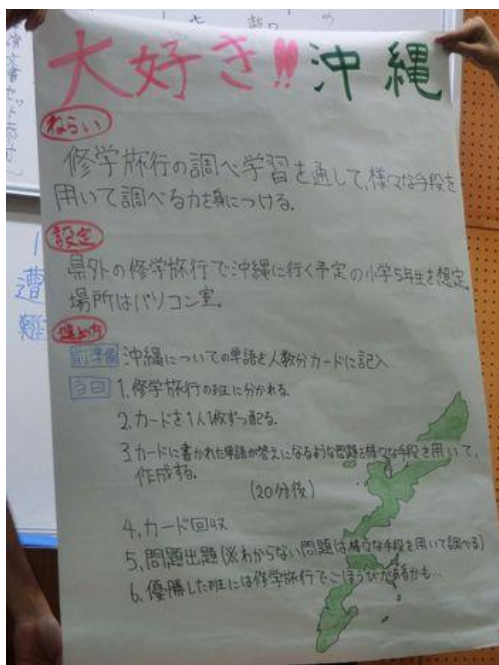 大好き!!沖縄
ねらい
修学旅行の調べ学習を通して、様々な手段を
用いて調べる力を身につける。
設定
県外の修学旅行で沖縄に行く予定の小学5年生を想定。
場所はパソコン室。
進め方
前準備 沖縄についての単語を人数分カードに記入
当日 1.修学旅行の班に分かれる。
2.カードを1人1枚ずつ配る。
3.カードに書かれた単語が答えになるような問題を様々な手段を用いて、
作成する。
(20分後)
4.カード回収
5.問題出題(※わからない問題は様々な手段を用いて調べる)
6.優勝した班には修学旅行でごほうびがあるかも…
遭
難